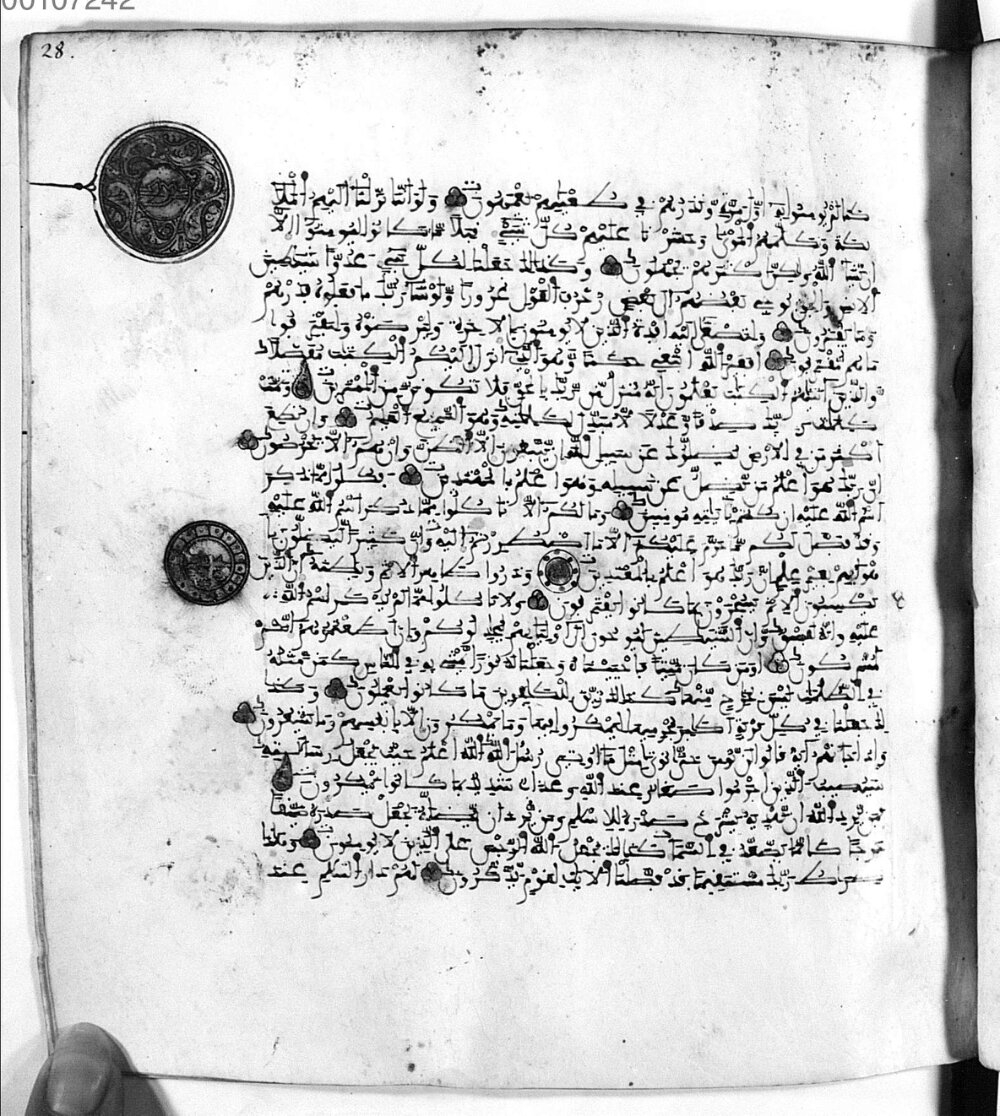 00107242
28.
كما لم يومنوا به أول مرة ونذرهم في طغينهم يعمهون ولو أننا نزلنا إليهم الملـ
ئكة وكلمهم الموتى وحشرنا عليهم كل شيء قبلا ما كانوا ليومنوا إلا
أن يشاء الله ولكن أكثرهم يجهلون وكذلك جعلنا لكل نبيء عدوا شيطين
الإنس والجن يوحي بعضهم إلى بعض زخرف القول غرورا ولو شاء ربك ما فعلوه فذرهم
وما يفترون ولتصغى إليه أفدة الذين لا يومنون بالأخرة وليرضوه وليقترفوا
ما هم مقترفون أفغير الله أبتغي حكما وهو الذي أنزل إليكم الكتب مفصلا
والذين اتينهم الكتب يعلمون أنه منزل من ربك بالحق فلا تكونن من الممترين وتمت
كلمت ربك صدقا وعدلا لا مبدل لكلمته وهو السميع العليم وإن تطع
أكثر من في الأرض يضلوك عن سبيل الله إن يتبعون إلا الظن وإن هم إلا يخرصون
إن ربك هو أعلم من يضل عن سبيله وهو أعلم بالمهتدين فكلوا مما ذكر
اسم الله عليه إن كنتم بايته مومنين وما لكم ألا تاكلوا مما ذكر اسم الله عليه
وقد فصل لكم ما حرم عليكم إلا ما اضطررتم إليه وإن كثيرا ليضلون بأ
هوايهم بغير علم إن ربك هو أعلم بالمعتدين وذروا ظهر الإثم وباطنه إن الذين
يكسبون الإثم سيجزون بما كانوا يقترفون ولا تاكلوا مما لم يذكر اسم الله
عليه وإنه لفسق وإن الشيطين ليوحون إلى أوليايهم ليجدلوكم وإن أطعتموهم إنكم
لمشركون أومن كان ميتا فأحيينه وجعلنا له نورا يمشي به في الناس كمن مثله
في الظلمت ليس بخارج منها كذلك زين للكفرين ما كانوا يعملون وكذ
لك جعلنا في كل قرية أكبر مجرميها ليمكروا فيها وما يمكرون إلا بأنفسهم وما يشعرون
وإذا جاءتهم اية قالوا لن نومن حتى نوتى مثل ما أوتي رسل الله الله أعلم حيث يجعل رسالته
سيصيب الذين أجرموا صغار عند الله وعذاب شديد بما كانوا يمكرون
فمن يرد الله أن يهديه يشرح صدره للإسلم ومن يرد أن يضله يجعل صدره ضيقا
حرجا كأنما يصعد في السماء كذلك يجعل الله الرجس على الذين لا يومنون وهذا
صراط ربك مستقيما قد فصلنا الأيت لقوم يذكرون لهم دار السلم عند